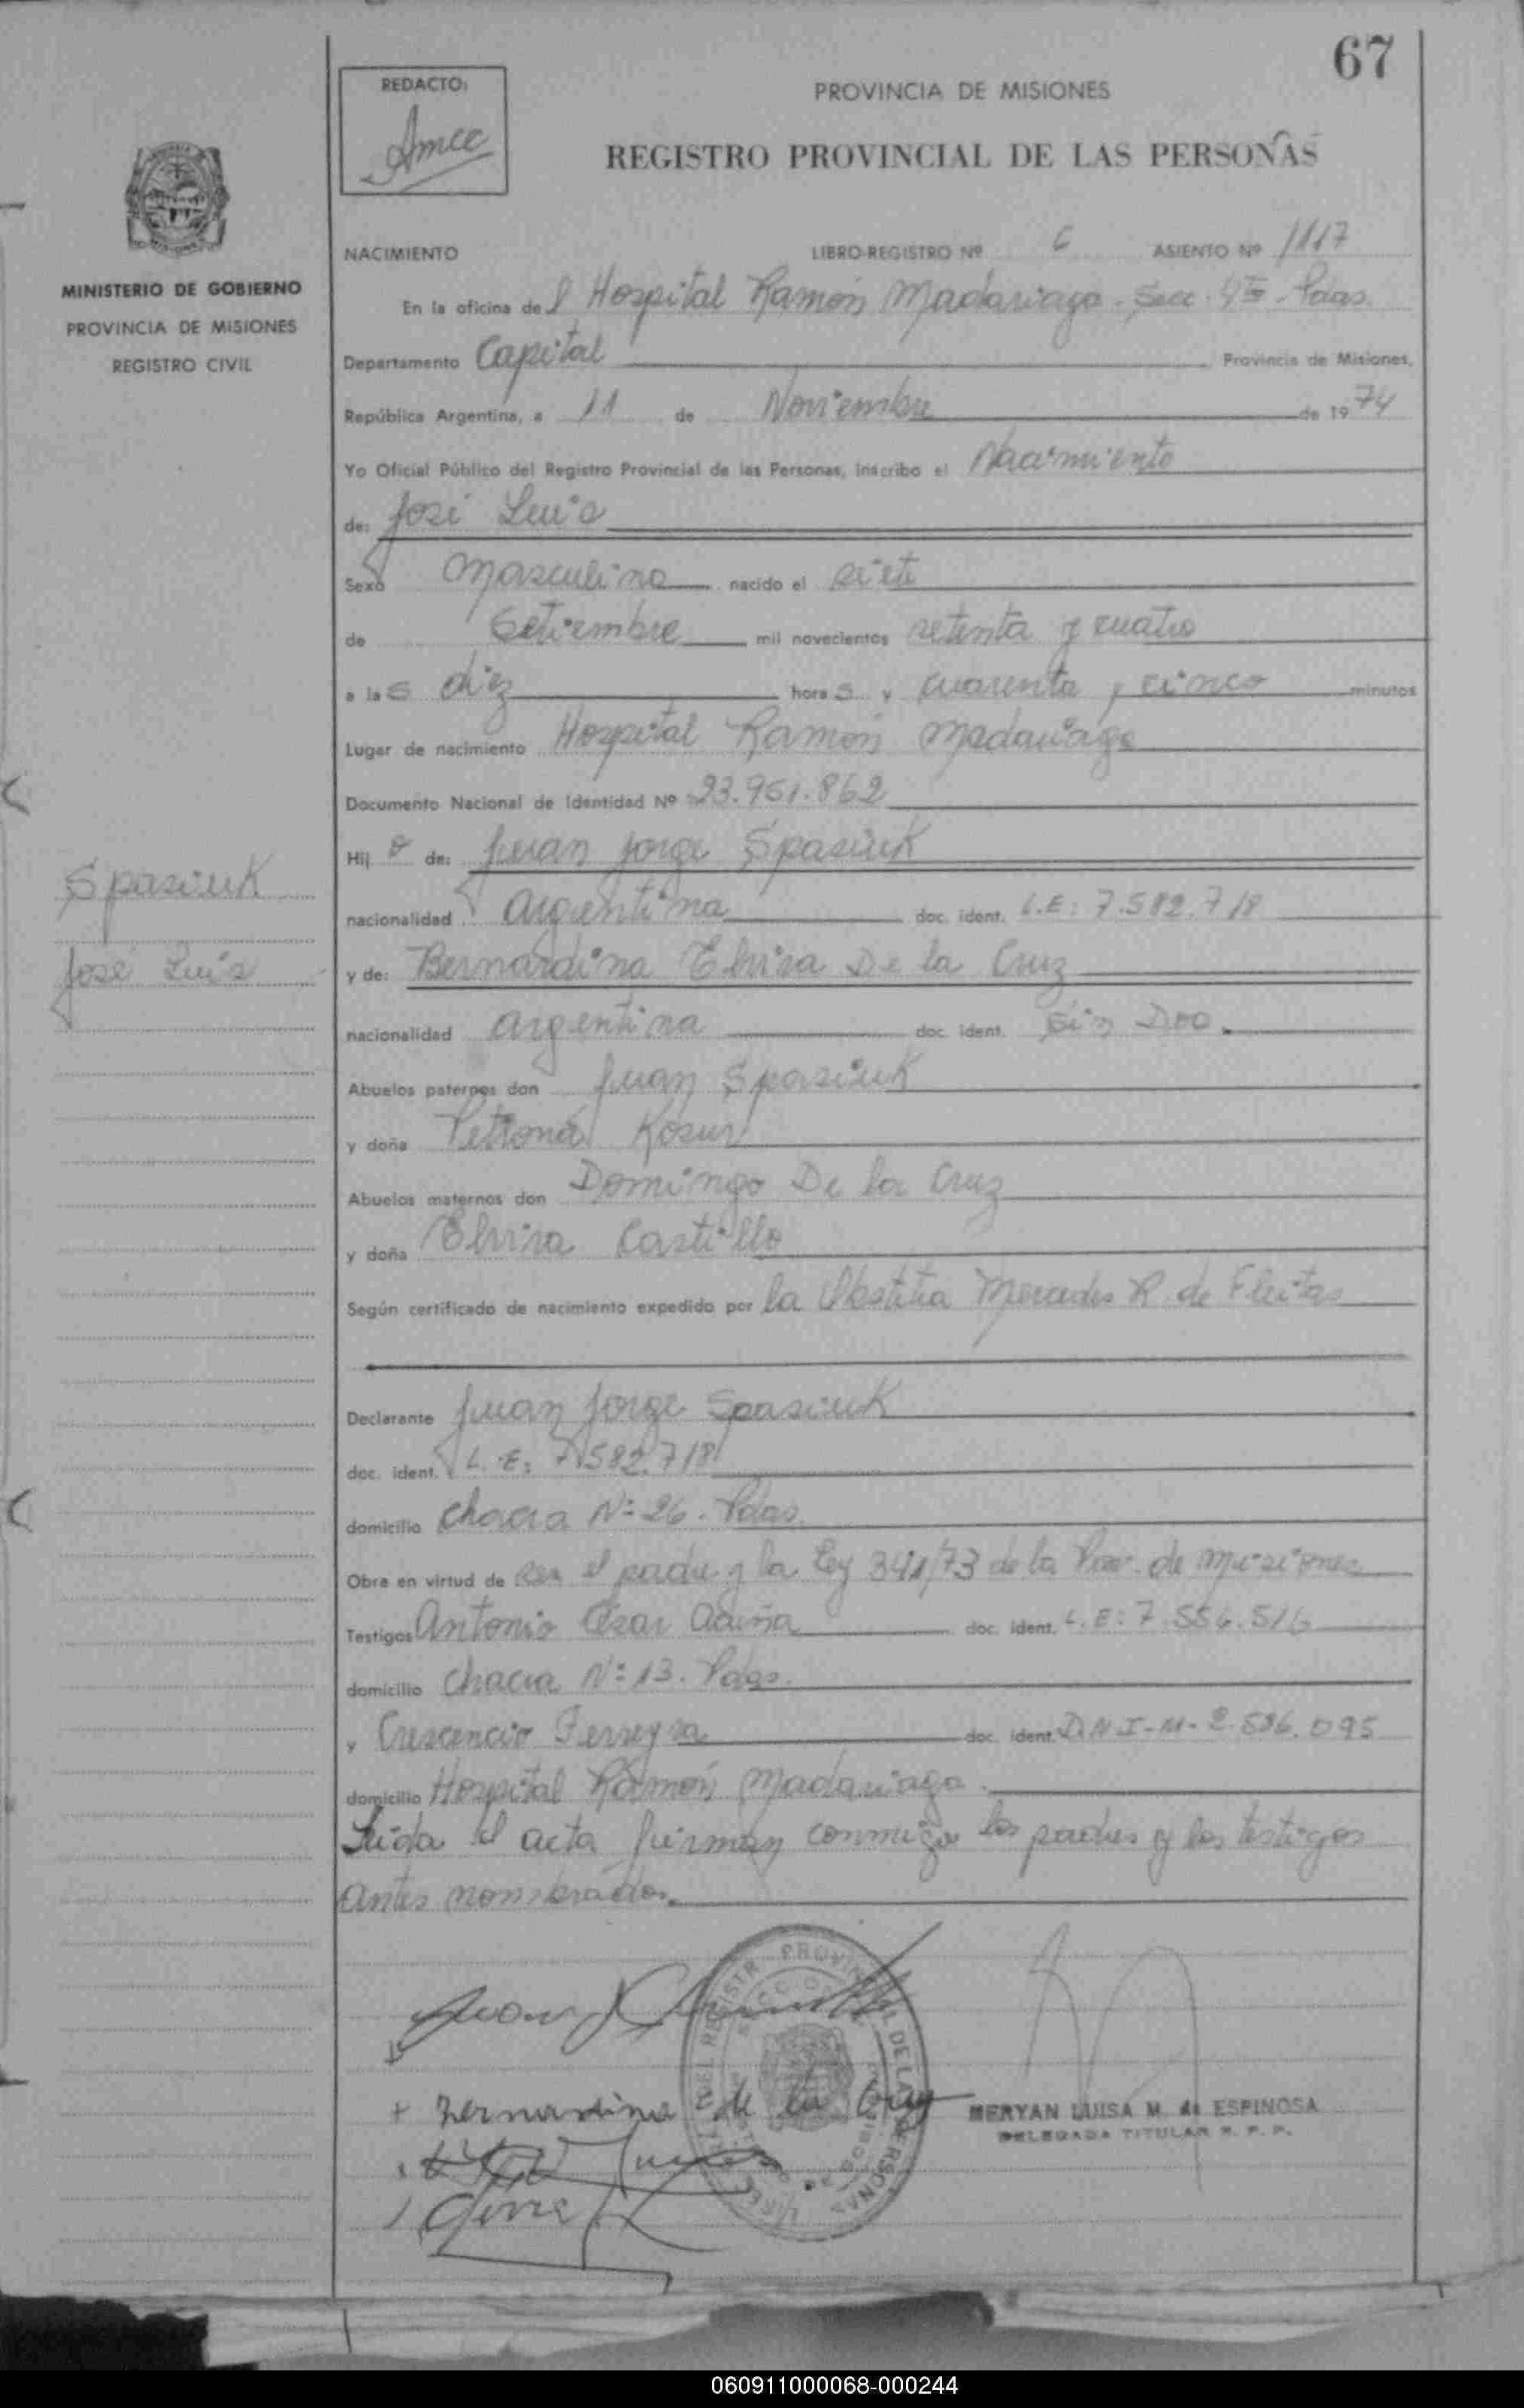 67
REDACTO:
Amcc
PROVINCIA DE MISIONES
REGISTRO PROVINCIAL DE LAS PERSONAS
MINISTERIO DE GOBIERNO
PROVINCIA DE MISIONES
REGISTRO CIVIL
NACIMIENTO LIBRO-REGISTRO Nº 6 ASIENTO Nº 1117
En la oficina del Hospital Ramón Madariaga. Secc. 4ta. Pdas.
Departamento Capital Provincia de Misiones,
República Argentina, a 11 de Noviembre de 1974
Yo Oficial Público del Registro Provincial de las Personas, inscribo el Nacimiento
de: José Luis
Sexo Masculino nacido el siete
de Setiembre mil novecientos setenta y cuatro
a las diez horas y cuarenta y cinco minutos
Lugar de nacimiento Hospital Ramón Madariaga
Documento Nacional de Identidad Nº 23.951.862
Hijo de: Juan Jorge Spasiuk
Spasiuk
José Luis
nacionalidad Argentina doc. ident. L.E: 7.582.718
y de: Bernardina Elvira De la Cruz
nacionalidad argentina doc. ident. Sin Doc.
Abuelos paternos don Juan Spasiuk
y doña Petrona Kosur
Abuelos maternos don Domingo De la Cruz
y doña Elvira Castillo
Según certificado de nacimiento expedido por la Obstetra Mercedes R. de Fleitas
Declarante Juan Jorge Spasiuk
doc. ident. L.E: 7.582.718
domicilio Chacra Nº 26. Pdas.
Obra en virtud de ser el padre y la Ley 341/73 de la Prov. de Misiones
Testigos Antonio César Acuña doc. ident. L.E: 7.556.516
domicilio Chacra Nº 13. Pdas.
y Crescencio Ferreyra doc. ident. D.N.I-M-2.586.095
domicilio Hospital Ramón Madariaga.
Leída el acta firman conmigo los padres y los testigos
antes nombrados.
Juan J
+ Bernardina de la Cruz
MERYAN LUISA M. de ESPINOSA
DELEGADA TITULAR R. P. P.
060911000068-000244